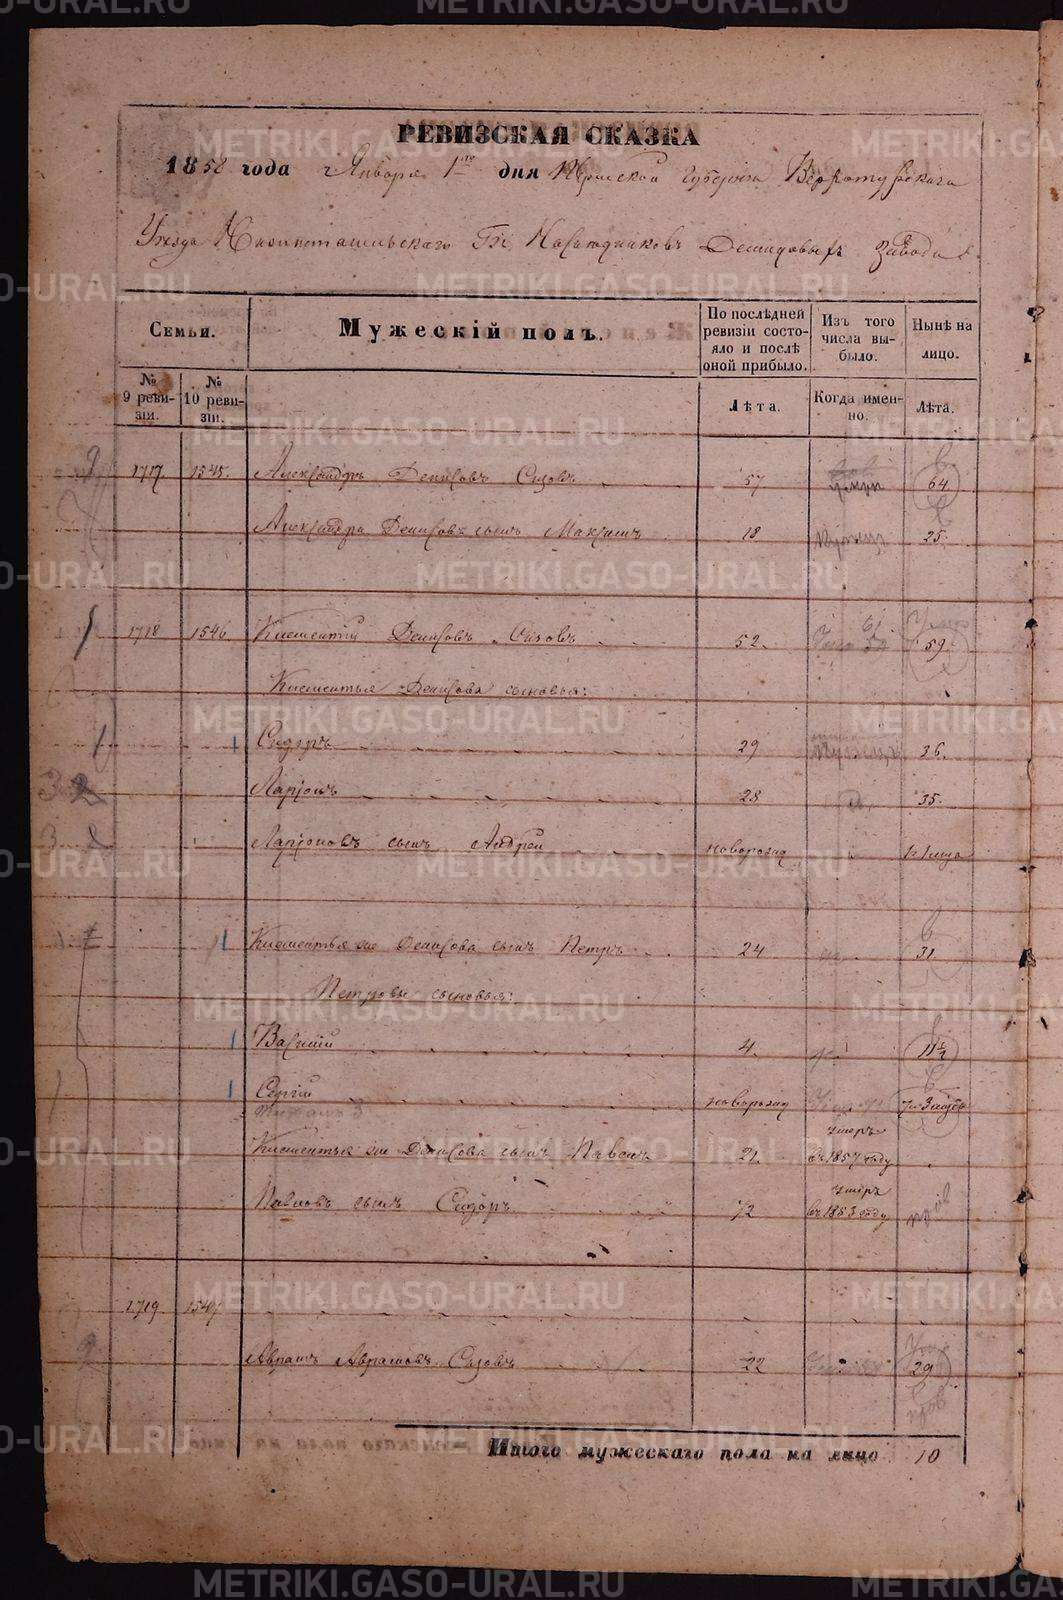 РЕВИЗСКАЯ СКАЗКА
1858 года Января 1го дня Пермской Губернiи Верхотурскаго
Уезда Нижнетагильскаго Гг. Наследниковъ Демидовыхъ завода
Семьи.
Мужескiй полъ.
По последней ревизiи состояло и после оной прибыло.
Изъ того числа выбыло.
Ныне на лицо.
№ 9 ревизiи.
№ 10 ревизiи.
Лѣта.
Когда именно.
Лѣта.
1717 1545. Александръ Денисовъ Сизовъ 57 64
Александра Денисова сынъ Максимъ 18 25.
1718 1546 Климентiй Денисовъ Сизовъ 52. 59.
Климентья Денисова сыновья:
Сидоръ 29 36.
Ларiонъ 28 35.
Ларiоновъ сынъ Андрей новорожд
Климентья же Денисова сынъ Петръ 24 31.
Петровы сыновья:
Василiй 4. 11½
Сергiй новорожд
Климентья же Денисова сынъ Павелъ 21. умеръ въ 1857 году
Павловъ сынъ Сидоръ 1/2 умеръ въ 1853 году
1719 1547
Аврамъ Аврамовъ Сизовъ 22 29
Итого мужескаго пола на лицо 10
METRIKI.GASO-URAL.RU